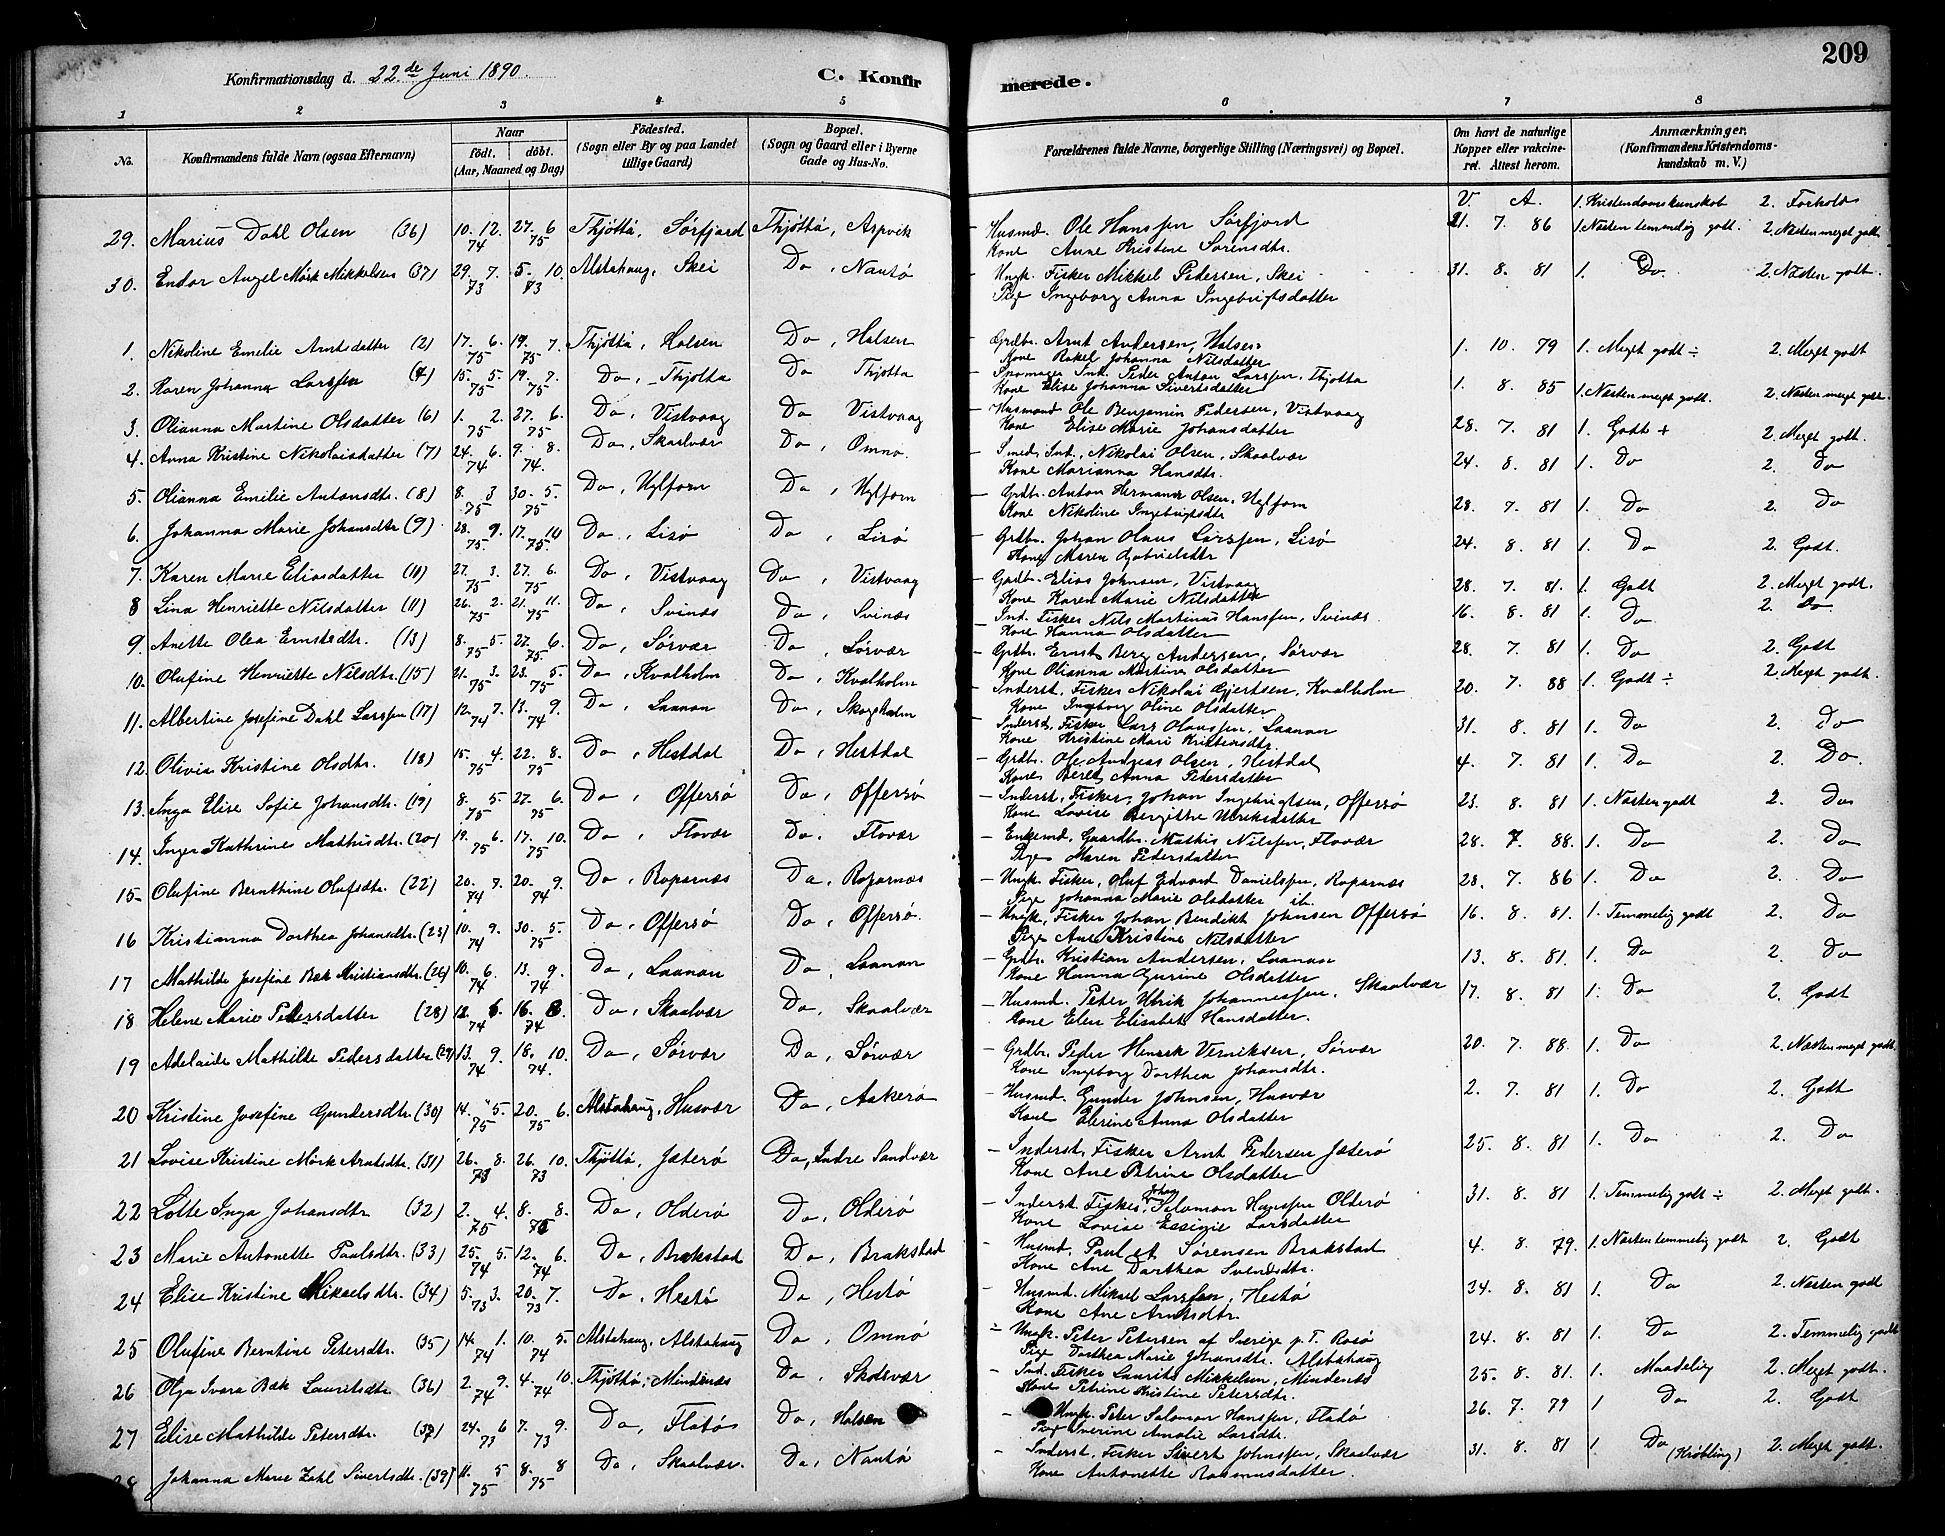 209
Konfirmationsdag d. 22de Juni 1890. C. Konfirmerede.
1 2 3 4 5 6 7 8
No. Konfirmandens fulde Navn (ogsaa Efternavn) Naar födt. döbt. (Aar, Maaned og Dag) Födested. (Sogn eller By og paa Landet tillige Gaard) Bopæl. (Sogn og Gaard eller i Byerne Gade og Hus-No. Forældrenes fulde Navne, borgerlige Stilling (Næringsvei) og Bopæl. Om havt de naturlige Kopper eller vakcineret. Attest herom. Anmærkninger. (Konfirmandens Kristendomskundskab m. V.)
V. A. 1. Kristendomskunskab 2. Forhold
29. Marius Dahl Olsen (36) 10. 12. 74 27. 6 75 Thjøttø, Sørfjord Thjøttø, Aspvik – Husmd. Ole Hanssen Sørfjord 21. 7. 86 1. Næsten temmelig godt. 2. Næsten meget godt
Kone Anne Kristine Sørensdtr.
30. Endor Angel Mørk Mikkelsen (37) 29. 7. 73 5. 10. 73 Alstahaug, Skei Do, Nautø – Ungk. Fisker Mikkel Pedersen, Skei 31. 8. 81 1. Do 2. Næsten godt.
Pige Ingeborg Anna Ingebrigtsdatter
1. Nikoline Emelie Arntsdatter (2) 17. 6. 75 19. 7. 75 Thjøttø, Halsen Do, Halsen – Grdbr. Arnt Andersen, Halsen 1. 10. 79 1. Meget godt ÷ 2. Meget godt
Kone Rakel Johanna Nilsdatter
2. Karen Johanna Larssen (4) 15. 5. 75 19. 7. 75 Do, Thjøtta Do Thjøtta – Snomager Ind. Peder Anton Larssen, Thjøtta 1. 8. 85 1. Næsten meget godt. 2. Næsten meget godt.
Kone Elise Johanna Sivertsdatter
3. Olianna Martine Olsdatter (6) 1. 2. 75 27. 6. 75 Do, Vistvaag Do Vistvaag – Husmand Ole Benjamin Pedersen, Vistvaag 28. 7. 81 1. Godt + 2. Meget godt.
Kone Elise Marie Johansdatter
4. Anna Kristine Nikolaisdatter (7) 24. 6. 74 9. 8. 74. Do, Skaalvær Do, Omnø. – Smed, Ind. Nikolai Olsen, Skaalvær 24. 8. 81 1. Do 2. Do
Kone Marianna Hansdtr.
5. Olianna Emilie Antonsdtr. (8) 8. 3 75 30. 5. 75 Do, Uglfom Do, Uglfom – Grdbr. Anton Hermann Olsen, Uglfom 28. 7. 81 1. Do 2. Do
Kone Nikoline Ingebrigtsdtr
6. Johanna Marie Johansdtr (9) 28. 9. 75. 17. 10 75. Do, Lisø Do, Lisø – Grdbr. Johan Olaus Larssen, Lisø 24. 8. 81 1. Do 2. Godt.
Kone Maren Gabrielsdtr
7. Karen Marie Eliasdatter (10) 27. 3. 75 27. 6. 75 Do, Vistvaag Do, Vistvaag – Gadbr. Elias Johnsen, Vistvaag 28. 7. 81. 1. Godt 2. Meget godt.
Kone Karen Marie Nilsdatter
8 Lina Henriette Nilsdatter (11) 26. 2. 75 21. 11. 75 Do, Svinæs Do, Svinæs – Ind. Fisker Nils Martinus Hanssen, Svinæs. 16. 8. 81 1. Do 2. Do
Kone Hanna Olsdatter
9. Anette Olea Ernstsdtr. (13) 8. 5. 75 27. 6. 75 Do, Sørvær Do, Sørvær – Grdbr. Ernst Berg Andersen, Sørvær 28. 7. 81 1. Do 2. Godt
Kone Olianna Martine Olsdatter
10. Olufine Henriette Nilsdtr. (15) 21. 3. 75 23. 5. 75 Do, Kvalholm Do, Kvalholm – Inderst. Fisker Nikolai Gjertsen, Kvalholm 20. 7. 88 1. Godt ÷ 2. Meget godt.
Kone Ingeborg Oline Olsdatter
11. Albertine Josefine Dahl Larssen (17) 12. 7. 74 13. 9. 74 Do, Laanan Do, Skogsholm – Inderst. Fisker Lars Olaussen, Laanan 31. 8. 81 1. Do 2. Do
Kone Kristine Mari Kristensdtr.
12. Olivia Kristine Olsdtr. (18) 15. 4. 75 22. 8. 75 Do, Hestdal Do, Hestdal – Grdbr. Ole Andreas Olsen, Hestdal 4. 7. 81 1. Do 2. Do.
Kone Beret Anna Petersdatter
13. Inga Elise Sofie Johansdtr. (19) 8. 5. 75 27. 6. 75 Do, Offersø Do, Offersø – Inderst. Fisker, Johan Ingebrigtsen, Offersø 23. 8. 81 1. Næsten godt 2. Do
Kone Lovise Bergithe Ulriksdatter
14. Inger Kathrine Mathisdtr. (20) 19. 6. 75 17. 10. 75 Do, Flovær Do. Flovær – Enkemd. Gaardbr. Mathis Nilssen, Flovær 28. 7. 88. 1. Do 2. Do
Pige Maren Pedersdatter
15. Olufine Bernthine Olufsdtr. (22) 20. 7. 74 20. 9. 74 Do, Roparnæs Do, Roparnæs – Ungk. Fisker, Oluf Edvard Danielssen, Roparnæs 28. 7. 86 1. Do 2. Do
Pige Johanna Marie Olsdatter ib.
16 Kristianna Dorthea Johansdtr. (23) 10. 9. 74 30. 5. 75 Do, Offersø Do, Offersø. – Ungk. Fisker Johan Bendikt Johnsen Offersø 16. 8. 81. 1. Temmelig godt 2. Do
Pige Ane Kristine Nilsdatter
17 Mathilde Josefine Bak Kristiansdtr. (26) 10. 6. 74 13. 9. 74 Do, Laanan Do, Laanan – Grdbr. Kristian Andersen, Laanan 13. 8. 81. 1. Do 2. Do
Kone Hanna Gurine Olsdatter
18 Helene Marie Petersdatter (28) 12. 6. 74 16. 8. 74 Do, Skaalvær Do, Skaalvær – Husmd. Peter Ulrik Johannessen, Skaalvær 17. 8. 81 1. Do 2. Godt
Kone Elen Elisabet Hansdatter.
19 Adelaide Mathilde Pedersdatter (29) 13. 9. 74 18. 10. 74. Do, Sørvær Do, Sørvær – Grdbr. Peder Henrik Verniksen, Sørvær 20. 7. 88. 1. Do 2. Næsten meget godt.
Kone Ingeborg Dorthea Johansdtr.
20 Kristine Josefine Gundersdtr. (30) 14. 5. 75 20. 6. 75 Alstahaug, Husvær Do, Aakerø – Husmd. Gunder Johnsen, Husvær 2. 7. 81 1. Do 2. Godt
Kone Elerine Anna Olsdatter
21 Lovise Kristine Mørk Arntsdtr. (31) 26. 8. 73 26. 10. 73 Thjøttø, Jæterø Do, Indre Sandvær – Inderst. Fisker Arnt Pedersen Jæterø 25. 8. 81 1. Do 2. Do
Kone Ane Petrine Olsdatter
22 Lotte Inga Johansdtr (32) 2. 4. 75 8. 8. 75 Do, Olderø Do, Olderø – Inderst. Fisker Johan Salomon Hanssen Olderø 31. 8. 81 1. Temmelig godt ÷ 2. Meget godt.
Kone Lovise Larsdatter
23 Marie Antonette Paulsdtr. (33) 25. 5. 74 12. 6. 74 Do, Brækstad Do, Brakstad – Husmd. Paul Sørensen Brakstad 4. 8. 79. 1. Næsten temmelig godt 2. Godt
Kone Ane Darthea Svendsdtr.
24 Elise Kristine Mikaelsdtr. (34) 5. 3. 73 20. 7. 73 Do, Hestø Do, Hestø – Husmd. Mikael Larssen, Hestø 24. 8. 81 1. Do 2. Næsten godt
Kone Ane Arntsdtr.
25 Olufine Berntine Petersdtr. (35) 14. 1. 74 10. 5. 74 Alstahaug, Alstahaug Do, Omnø ÷ Ungk. Peter Petersen af Sverige p. T. Rosø 24. 8. 81 1. Do 2. Temmelig godt
Pige Dorthea Marie Johansdtr. Alstahaug
26 Olga Ivara Bak Lauritsdtr (36) 2. 9. 74 4. 10. 74 Thjøttø, Mindenæs Do, Skotsvær – Ind. Fisker Laurits Mikkelsen, Mindenæs 25. 8. 81. 1. Maadelig 2. Meget godt.
Kone Petrine Kristine Petersdtr.
27 Elise Mathilde Petersdtr. (37) 24. 6 73 7. 9. 73 Do, Flatøs Do, Halsen – Ungk. Peter Salomon Hanssen, Flatø 26. 7. 79 1 Do 2. Godt
Pige Iverine Amalie Larsdtr.
28 Johanna Marie Zahl Sivertsdtr. (39) 11. 5 75 8. 8 75 Do, Skaalvær. Do, Nautø – Inderst. Fisker Sivert Johnssen, Skaalvær 31. 8. 81 1. Do (Krøbling) 2. Meget godt.
Kone Antonette Rasmusdatter.